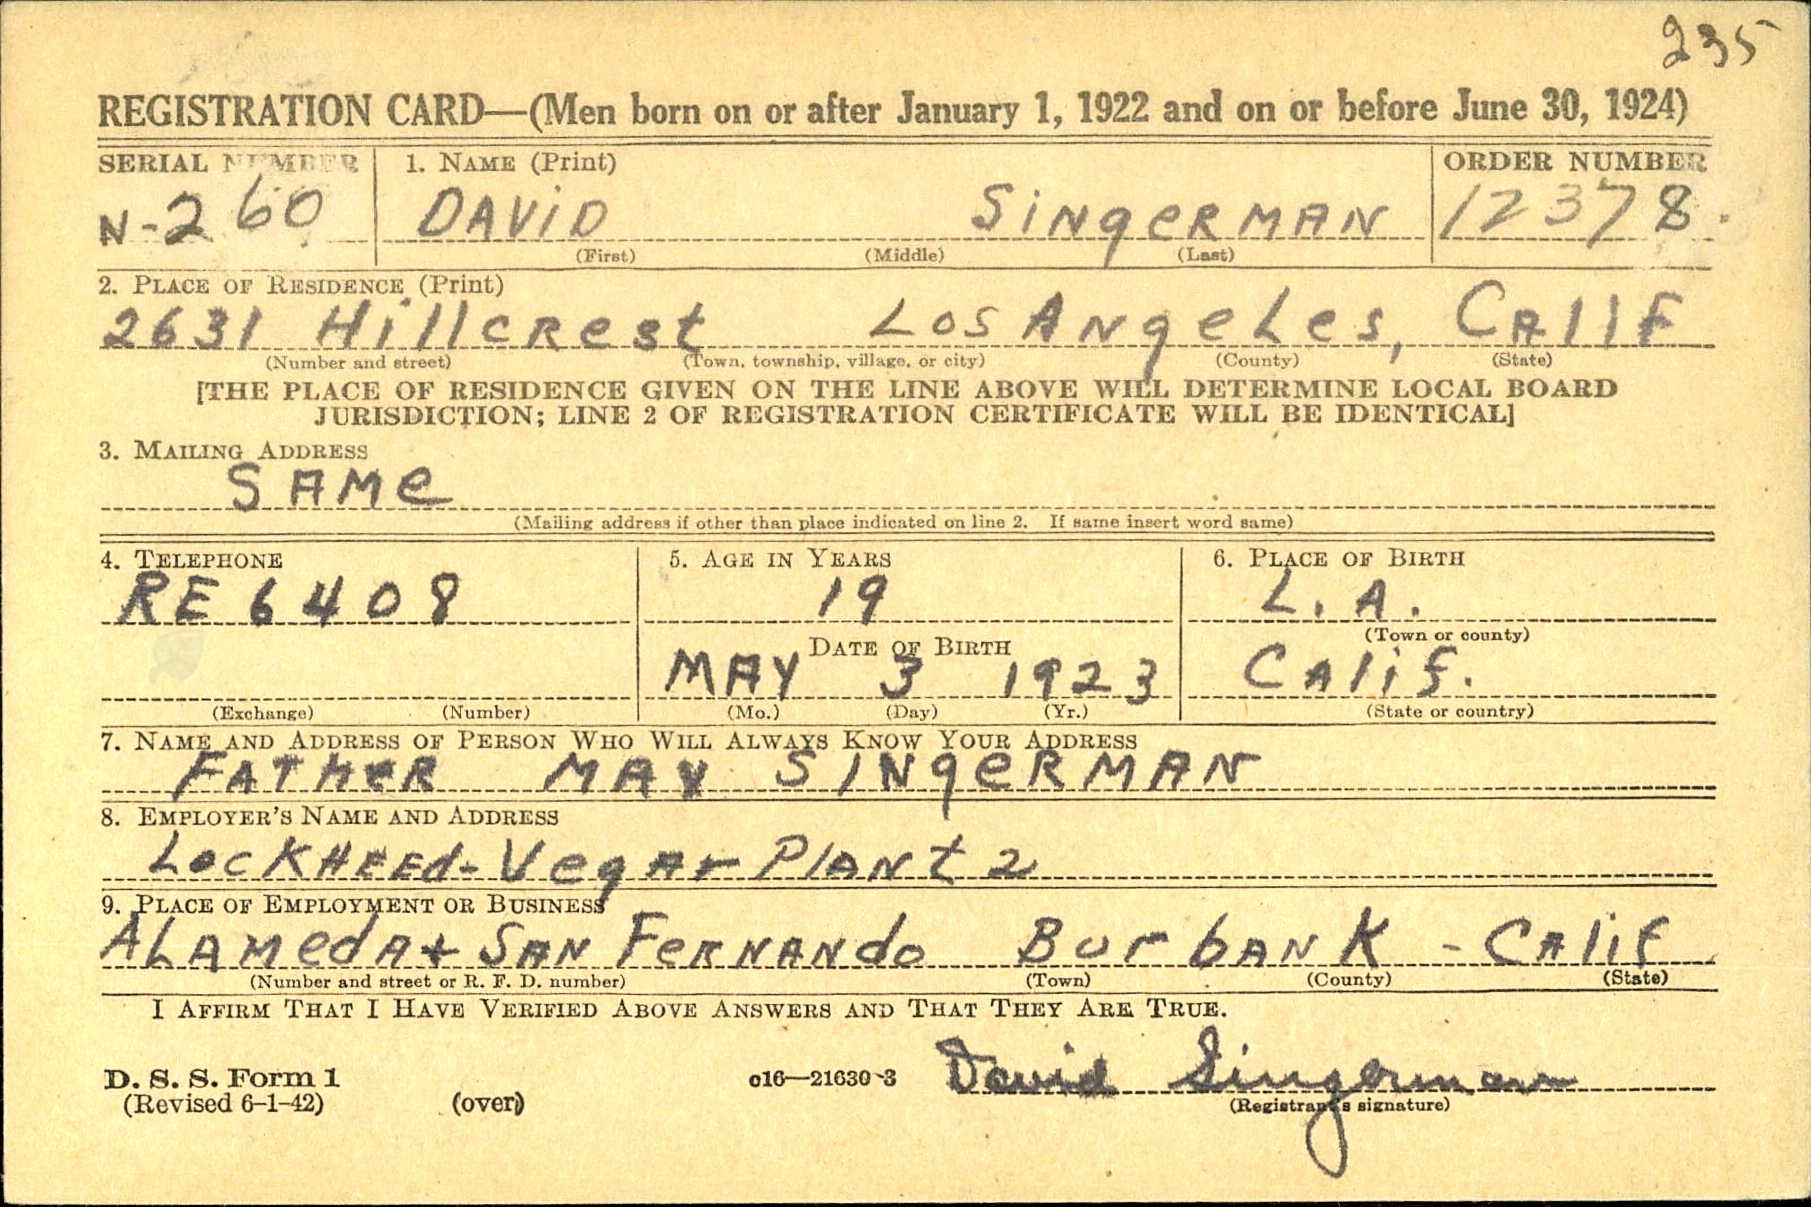 235
REGISTRATION CARD—(Men born on or after January 1, 1922 and on or before June 30, 1924)
SERIAL NUMBER 1. NAME (Print) ORDER NUMBER
N-260 DAViD SiNgeRMAN 12378.
(First) (Middle) (Last)
2. PLACE OF RESIDENCE (Print)
2631 HillcRest Los ANgeLes, CAlif
(Number and street) (Town, township, village, or city) (County) (State)
[THE PLACE OF RESIDENCE GIVEN ON THE LINE ABOVE WILL DETERMINE LOCAL BOARD
JURISDICTION; LINE 2 OF REGISTRATION CERTIFICATE WILL BE IDENTICAL]
3. MAILING ADDRESS
SAMe
(Mailing address if other than place indicated on line 2. If same insert word same)
4. TELEPHONE 5. AGE IN YEARS 6. PLACE OF BIRTH
RE 6408 19 L.A.
(Town or county)
DATE OF BIRTH
MAY 3 1923 CAlif.
(Exchange) (Number) (Mo.) (Day) (Yr.) (State or country)
7. NAME AND ADDRESS OF PERSON WHO WILL ALWAYS KNOW YOUR ADDRESS
FATHeR SINgeRMAN
8. EMPLOYER'S NAME AND ADDRESS
LocKHEEd-VegAr PlANt 2
9. PLACE OF EMPLOYMENT OR BUSINESS
ALAMedA + SAN FeRNANdo BurbANK - CAlif
(Number and street or R. F. D. number) (Town) (County) (State)
I AFFIRM THAT I HAVE VERIFIED ABOVE ANSWERS AND THAT THEY ARE TRUE.
D. S. S. Form 1 c16—21630-3 David Singerman
(Revised 6-1-42) (over) (Registrant's signature)